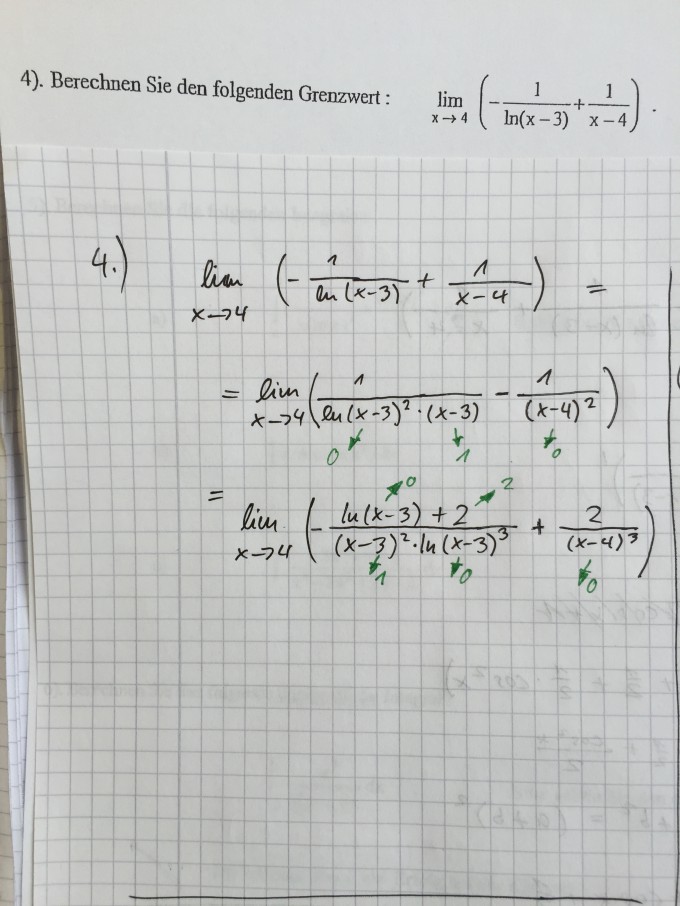 4). Berechnen Sie den folgenden Grenzwert : lim x→4 (- 1/ln(x-3) + 1/x-4) .
4.) lim x→4 (- 1/ln(x-3) + 1/x-4) =
= lim x→4 (1/ln(x-3)²·(x-3) - 1/(x-4)²)
0 1 0
0 2
= lim x→4 (- ln(x-3)+2/(x-3)²·ln(x-3)³ + 2/(x-4)³)
1 0 0